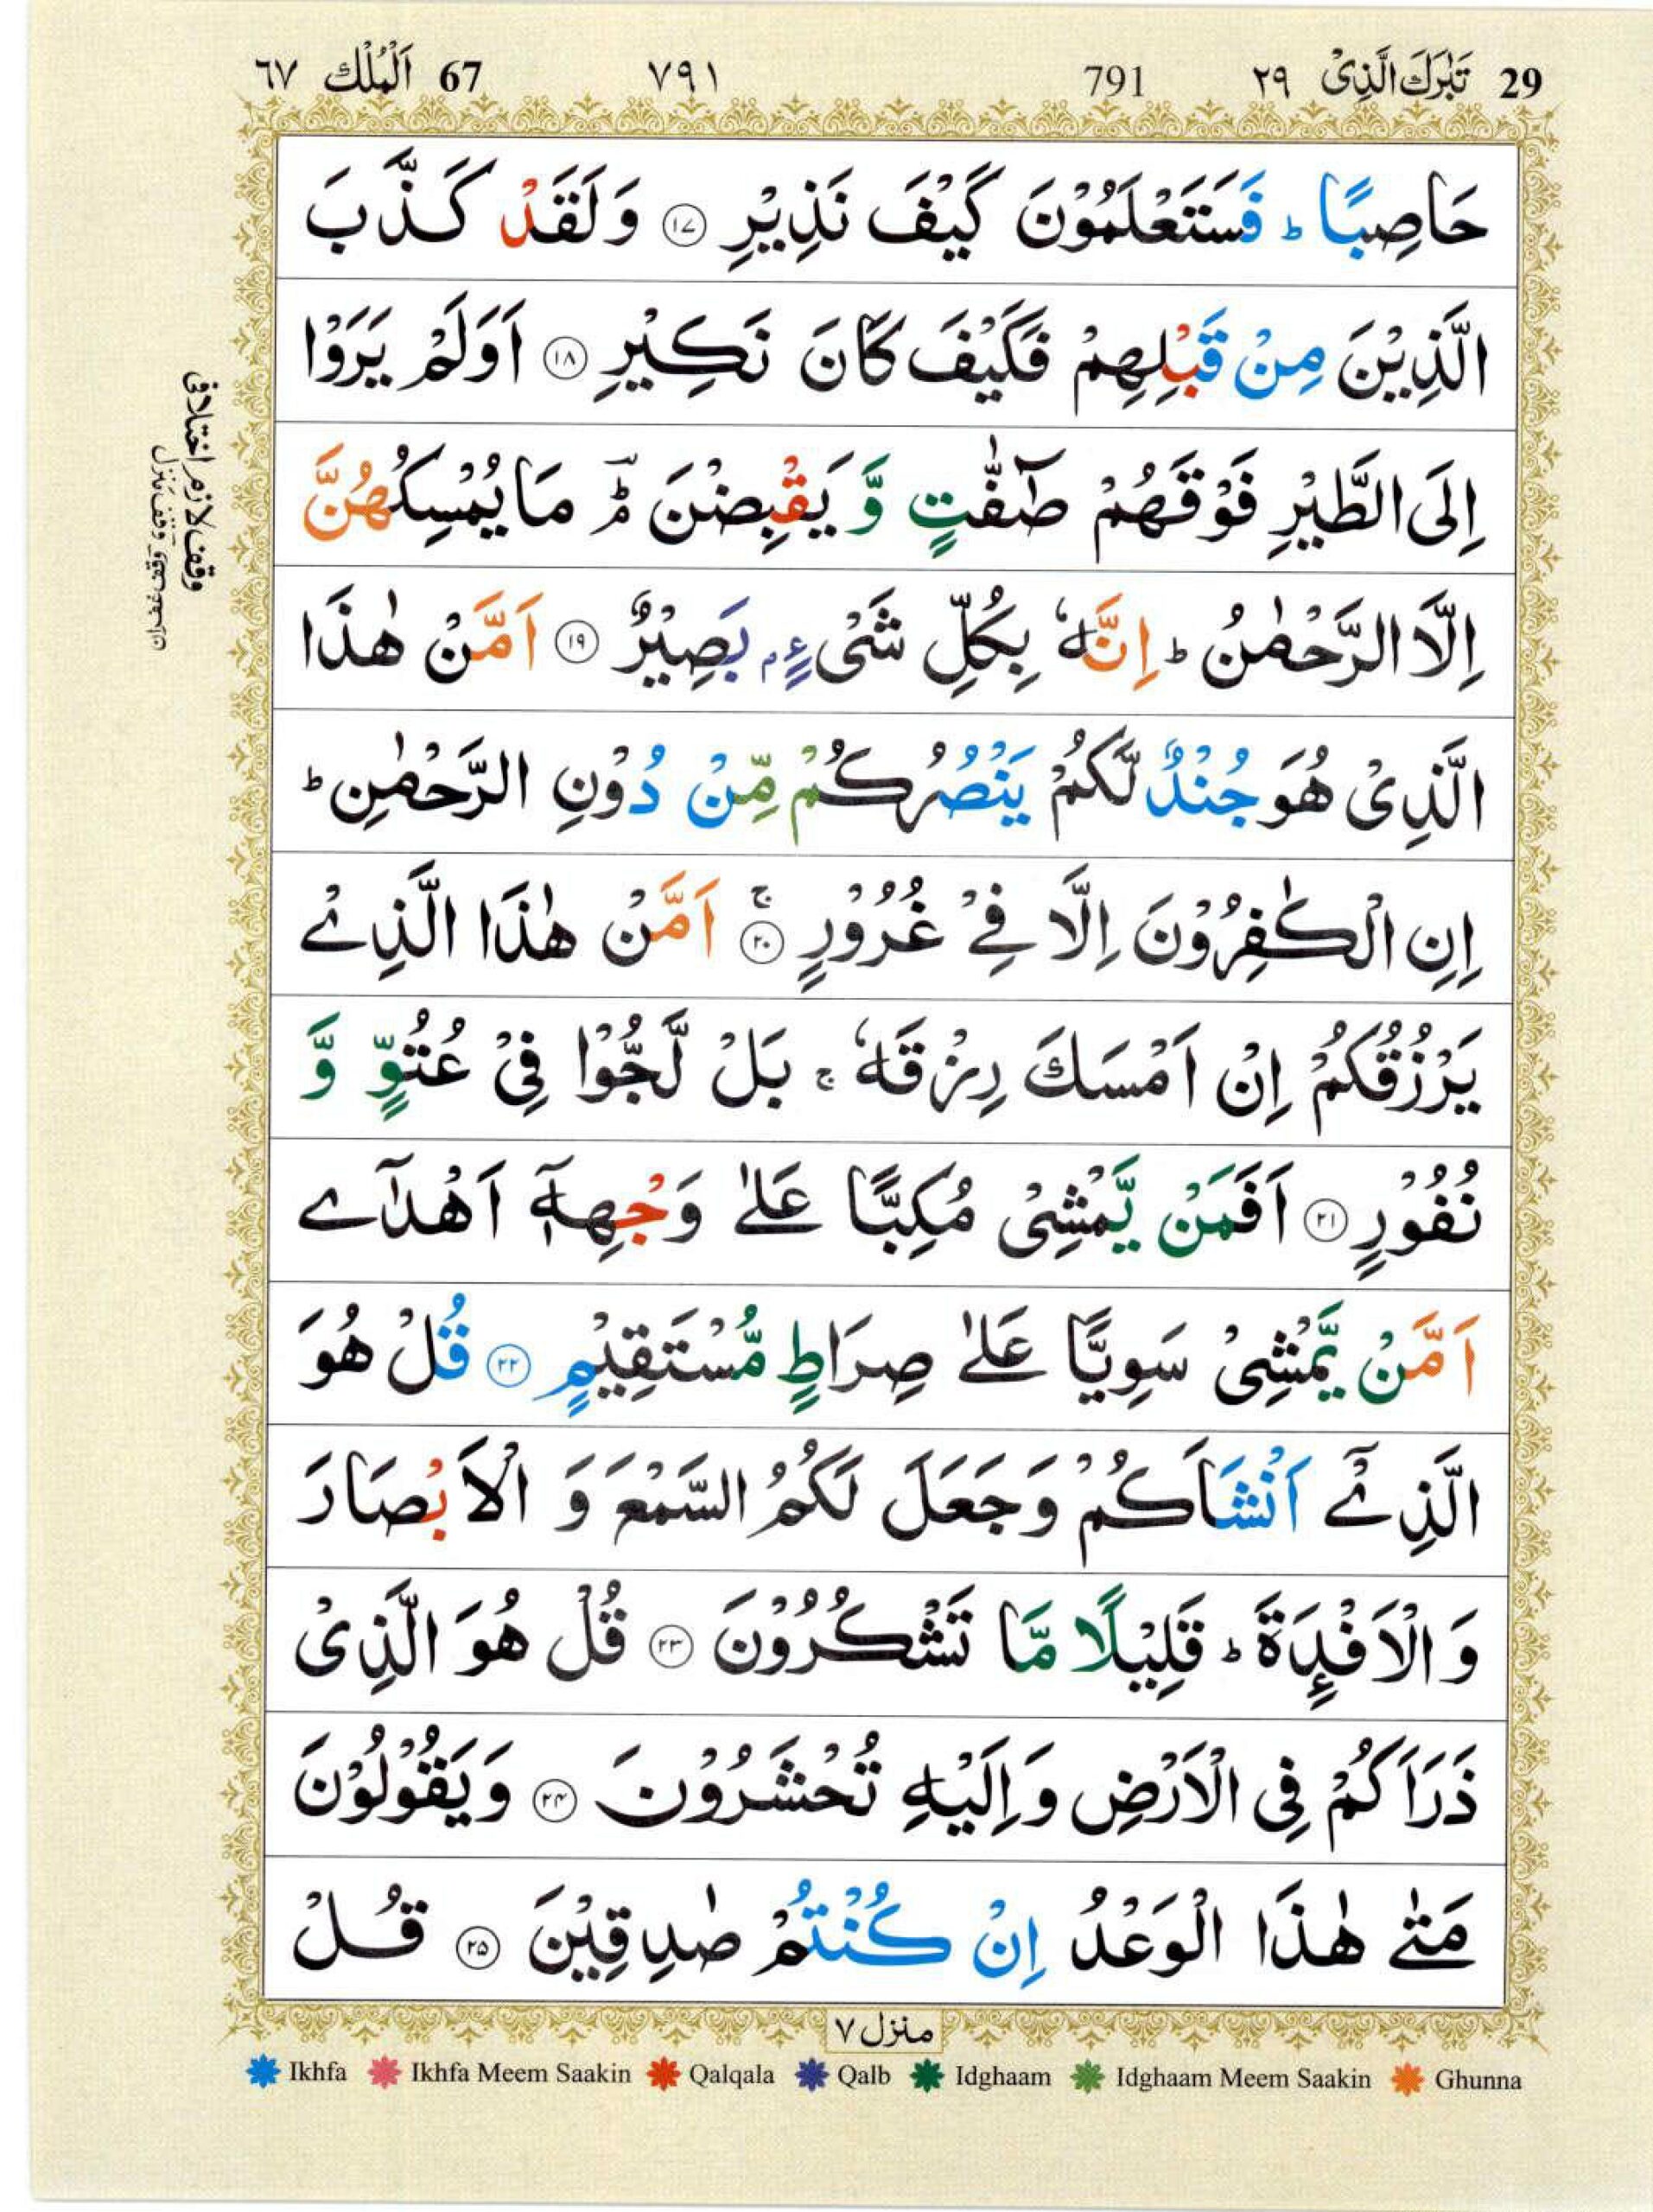 29 تَبٰرَكَ الَّذِیْ ۲۹ 791 ۷۹۱ 67 اَلْمُلْكُ ٦٧
حَاصِبًا ؕ فَسَتَعْلَمُوْنَ كَیْفَ نَذِیْرِ ۝۱۷ وَ لَقَدْ كَذَّبَ
الَّذِیْنَ مِنْ قَبْلِهِمْ فَكَیْفَ كَانَ نَكِیْرِ ۝۱۸ اَوَلَمْ یَرَوْا
اِلَی الطَّیْرِ فَوْقَهُمْ صٰٓفّٰتٍ وَّ یَقْبِضْنَ ؔؕۘ مَا یُمْسِكُهُنَّ
اِلَّا الرَّحْمٰنُ ؕ اِنَّهٗ بِكُلِّ شَیْءٍۭ بَصِیْرٌ ۝۱۹ اَمَّنْ هٰذَا
الَّذِیْ هُوَ جُنْدٌ لَّكُمْ یَنْصُرُكُمْ مِّنْ دُوْنِ الرَّحْمٰنِ ؕ
اِنِ الْكٰفِرُوْنَ اِلَّا فِیْ غُرُوْرٍ ۝۲۰ۚ اَمَّنْ هٰذَا الَّذِیْ
یَرْزُقُكُمْ اِنْ اَمْسَكَ رِزْقَهٗ ۚ بَلْ لَّجُّوْا فِیْ عُتُوٍّ وَّ
نُفُوْرٍ ۝۲۱ اَفَمَنْ یَّمْشِیْ مُكِبًّا عَلٰی وَجْهِهٖۤ اَهْدٰۤی
اَمَّنْ یَّمْشِیْ سَوِیًّا عَلٰی صِرَاطٍ مُّسْتَقِیْمٍ ۝۲۲ قُلْ هُوَ
الَّذِیْۤ اَنْشَاَكُمْ وَ جَعَلَ لَكُمُ السَّمْعَ وَ الْاَبْصَارَ
وَ الْاَفْـِٕدَةَ ؕ قَلِیْلًا مَّا تَشْكُرُوْنَ ۝۲۳ قُلْ هُوَ الَّذِیْ
ذَرَاَكُمْ فِی الْاَرْضِ وَ اِلَیْهِ تُحْشَرُوْنَ ۝۲۴ وَ یَقُوْلُوْنَ
مَتٰی هٰذَا الْوَعْدُ اِنْ كُنْتُمْ صٰدِقِیْنَ ۝۲۵ قُلْ
وقف لازم اختلافی
وقف غفران وقف منزل
منزل ۷
Ikhfa Ikhfa Meem Saakin Qalqala Qalb Idghaam Idghaam Meem Saakin Ghunna